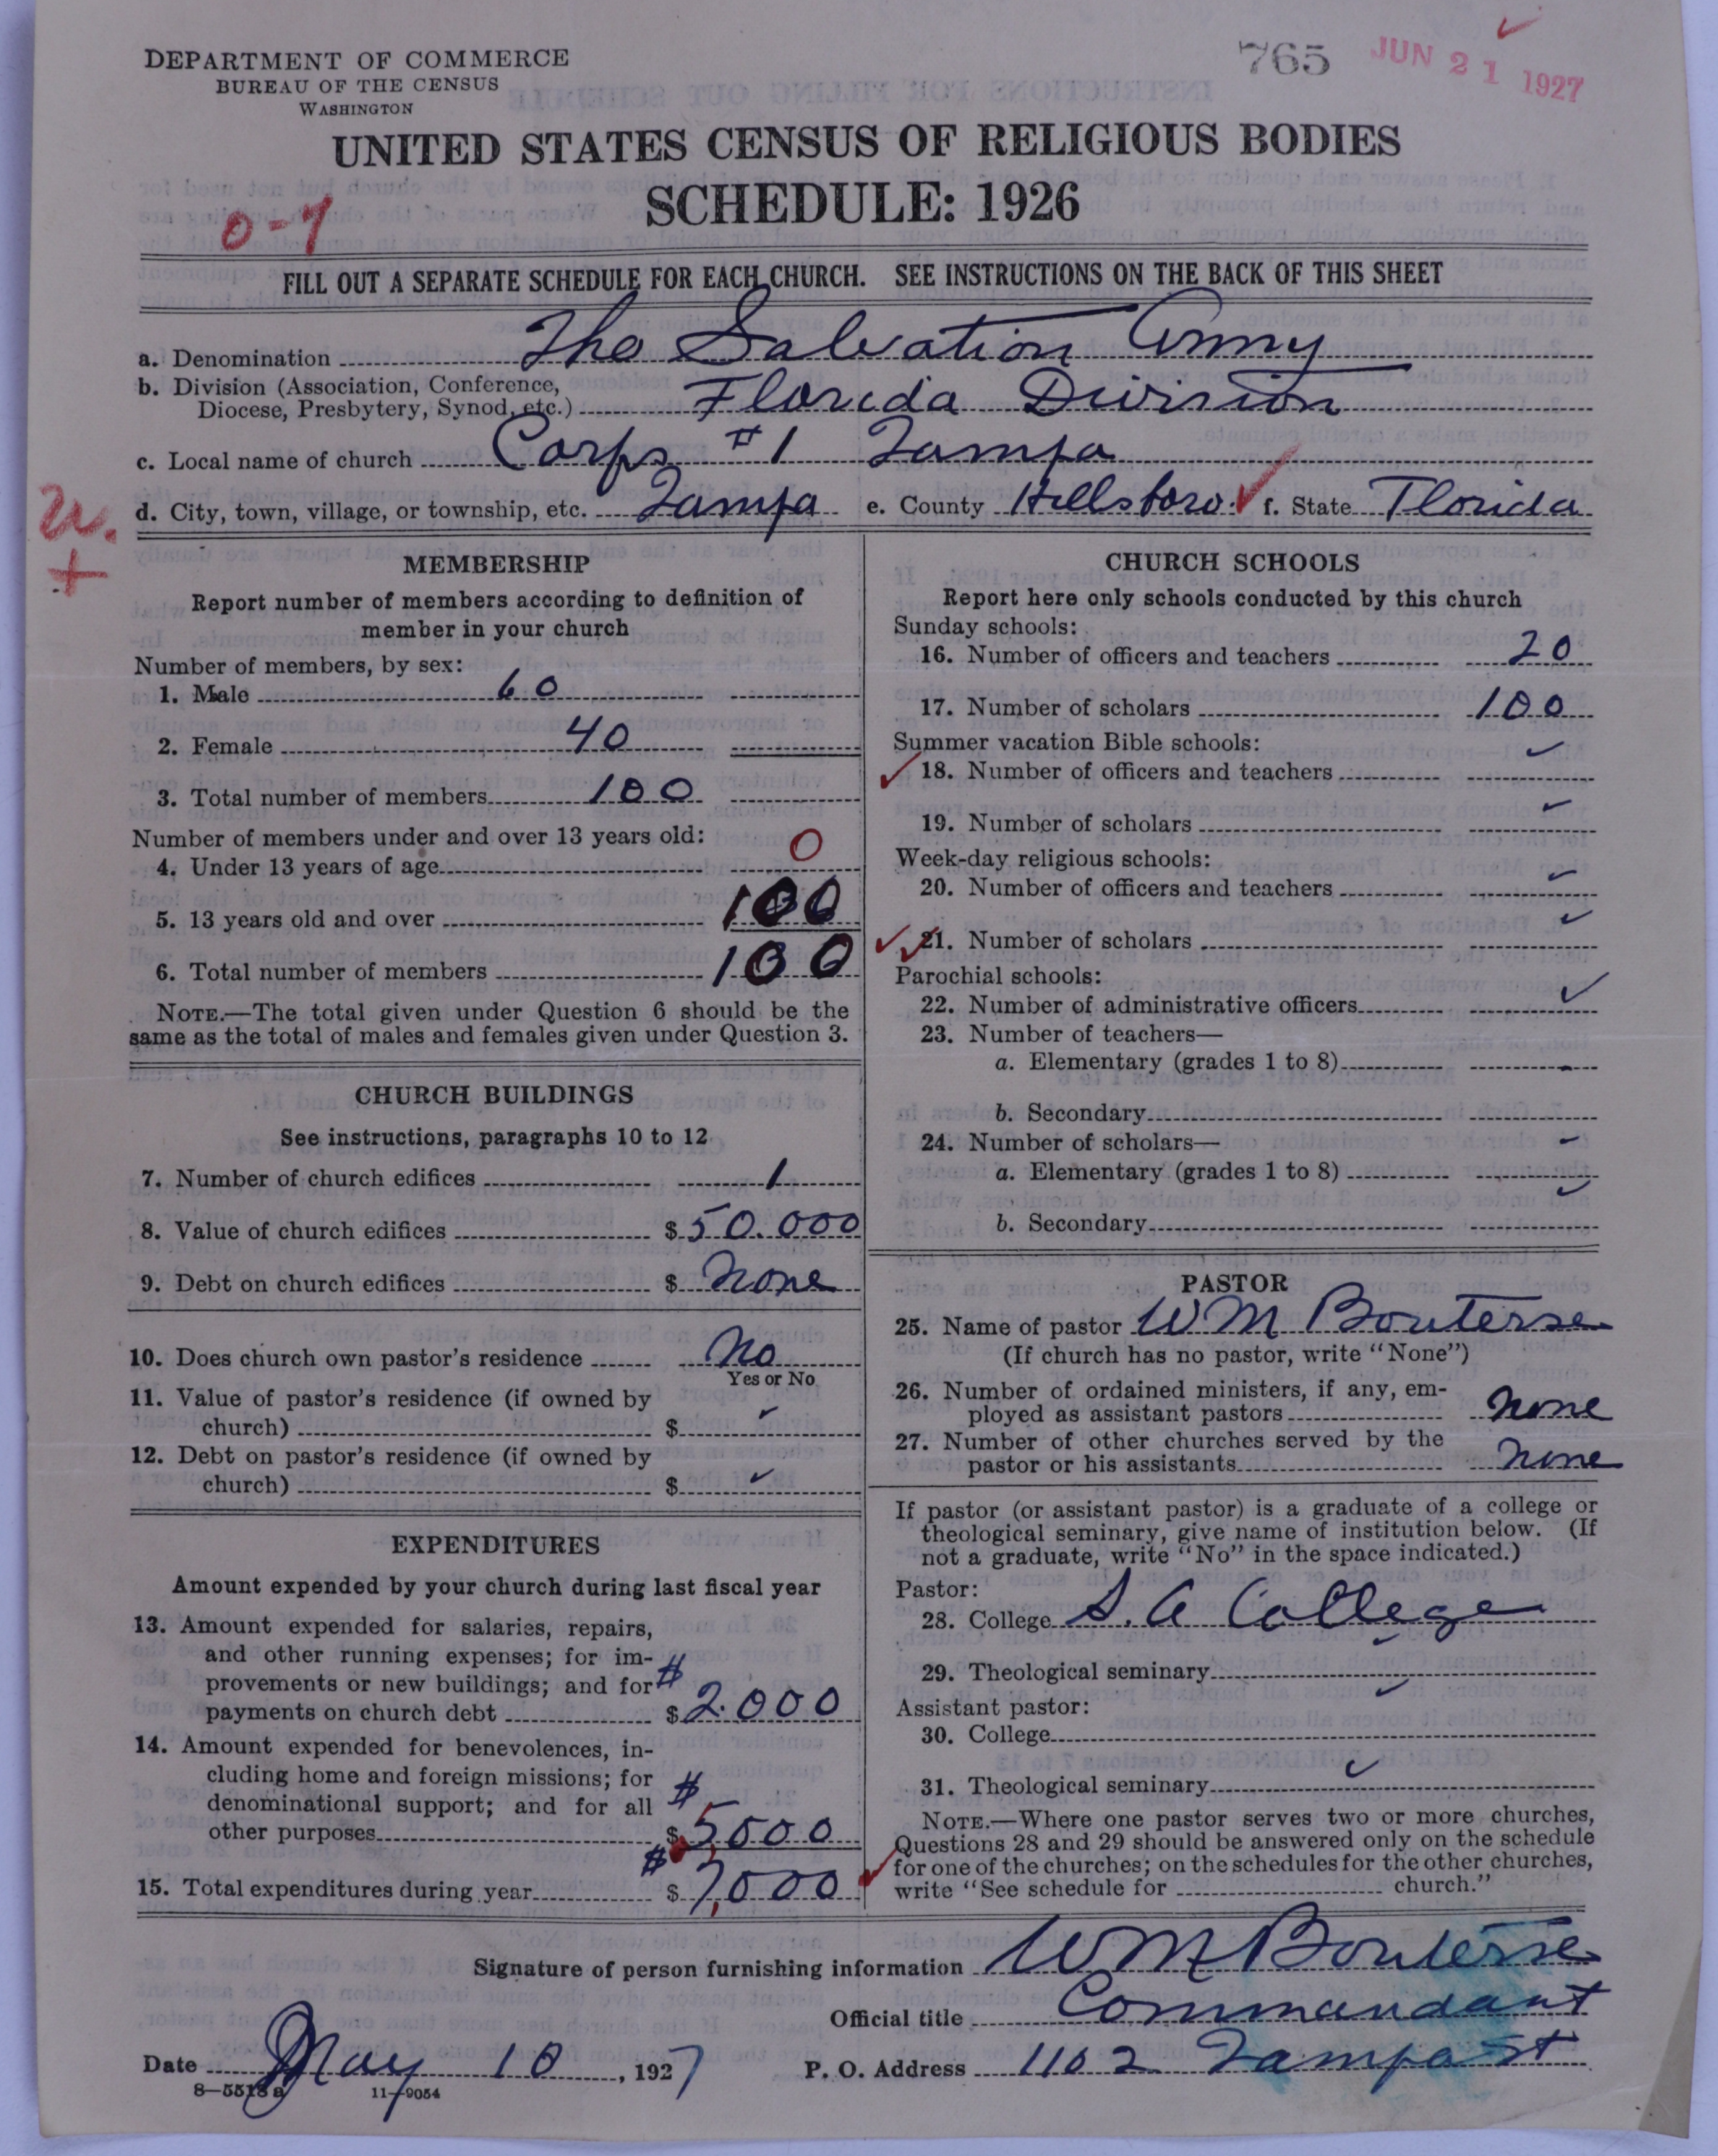 DEPARTMENT OF COMMERCE
BUREAU OF THE CENSUS
WASHINGTON
765
JUN 21 1927
UNITED STATES CENSUS OF RELIGIOUS BODIES
SCHEDULE: 1926
FILL OUT A SEPARATE SCHEDULE FOR EACH CHURCH. SEE INSTRUCTIONS ON THE BACK OF THIS SHEET
a. Denomination The Salvation Army
b. Division (Association, Conference,
Diocese, Presbytery, Synod, etc.) Florida Division
c. Local name of church Corps #1 Tampa
d. City, town, village, or township, etc. Tampa e. County Hillsboro. f. State Florida
MEMBERSHIP
Report number of members according to definition of
member in your church
Number of members, by sex:
1. Male 60
2. Female 40
3. Total number of members 100
Number of members under and over 13 years old:
4. Under 13 years of age 0
5. 13 years old and over 100
6. Total number of members 100
NOTE.—The total given under Question 6 should be the
same as the total of males and females given under Question 3.
CHURCH BUILDINGS
See instructions, paragraphs 10 to 12
7. Number of church edifices 1
8. Value of church edifices $50.000
9. Debt on church edifices $ None
10. Does church own pastor's residence No
Yes or No
11. Value of pastor's residence (if owned by
church) $ ✓
12. Debt on pastor's residence (if owned by
church) $ ✓
EXPENDITURES
Amount expended by your church during last fiscal year
13. Amount expended for salaries, repairs,
and other running expenses; for im-
provements or new buildings; and for #
payments on church debt $2.000
14. Amount expended for benevolences, in-
cluding home and foreign missions; for #
denominational support; and for all
other purposes $5,000
#
15. Total expenditures during year $7,000
CHURCH SCHOOLS
Report here only schools conducted by this church
Sunday schools:
16. Number of officers and teachers 20
17. Number of scholars 100
Summer vacation Bible schools:
18. Number of officers and teachers
19. Number of scholars
Week-day religious schools:
20. Number of officers and teachers
21. Number of scholars
Parochial schools:
22. Number of administrative officers
23. Number of teachers—
a. Elementary (grades 1 to 8)
b. Secondary
24. Number of scholars—
a. Elementary (grades 1 to 8)
b. Secondary
PASTOR
25. Name of pastor WM Bouterse
(If church has no pastor, write "None")
26. Number of ordained ministers, if any, em-
ployed as assistant pastors None
27. Number of other churches served by the
pastor or his assistants None
If pastor (or assistant pastor) is a graduate of a college or
theological seminary, give name of institution below. (If
not a graduate, write "No" in the space indicated.)
Pastor:
28. College S. A College
29. Theological seminary
Assistant pastor:
30. College
31. Theological seminary
NOTE.—Where one pastor serves two or more churches,
Questions 28 and 29 should be answered only on the schedule
for one of the churches; on the schedules for the other churches,
write "See schedule for church."
Signature of person furnishing information WM Bouterse
Official title Commandant
Date May 10, 1927 P. O. Address 1102 Tampa St
8—5518 a 11—9054